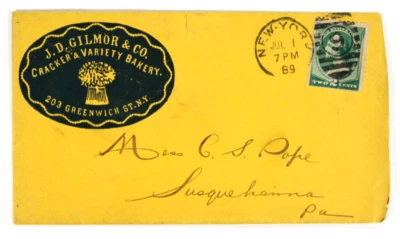 J. D. GILMOR & CO.
CRACKER & VARIETY BAKERY.
203 GREENWICH ST. N.Y.
NEW-YORK
JUL 1
7 PM
89
TWO CENTS
Miss C. S. Pope
Susquehanna
Pa